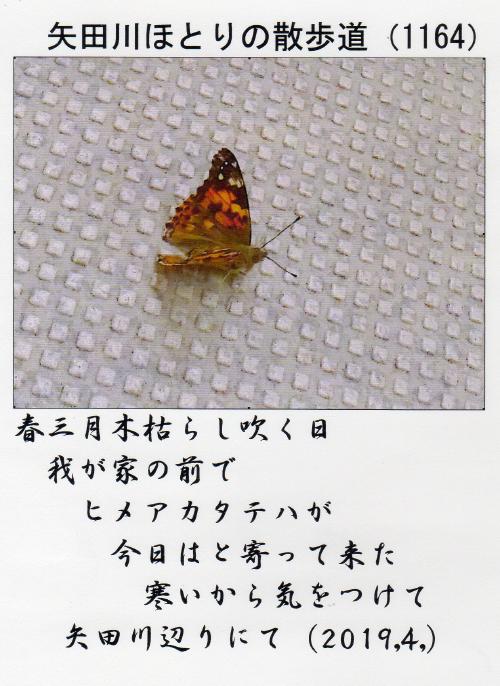 矢田川ほとりの散歩道（1164）
春三月木枯らし吹く日
我が家の前で
ヒメアカタテハが
今日はと寄って来た
寒いから気をつけて
矢田川辺りにて（2019,4,）